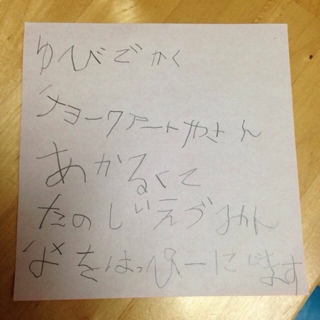 ゆびでかく
チョークアートやさん
あかるくて
たのしいえで みん
なをはっぴーにします